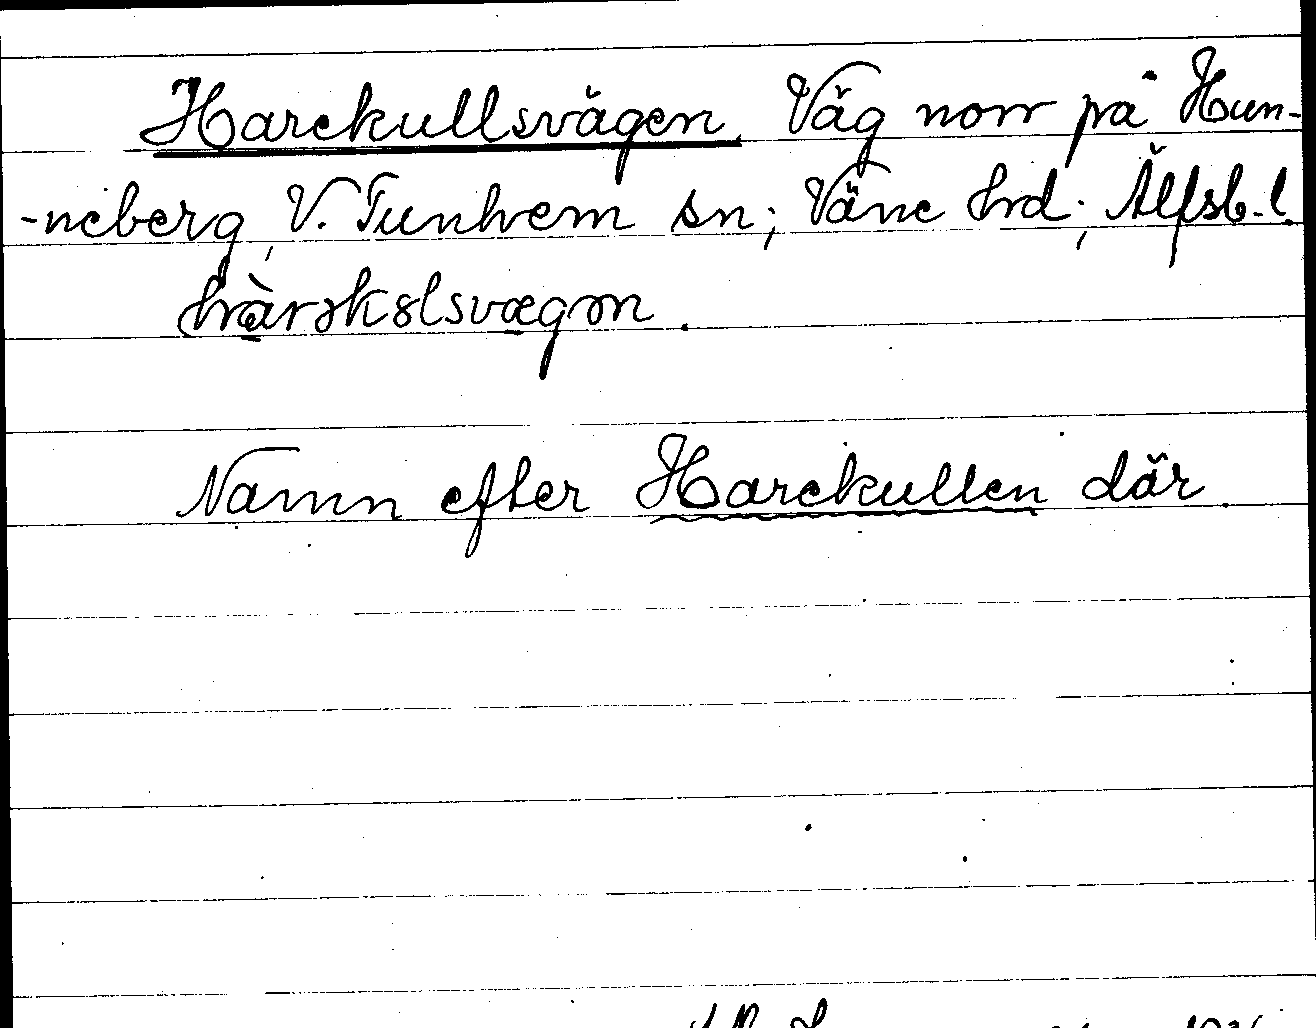 Harekullsvägen. Väg norr på Hun-
-neberg, V. Tunhem sn; Väne hd; Älfsb. l.
hàrəkɵlsvægən.
Namn efter Harekullen där.